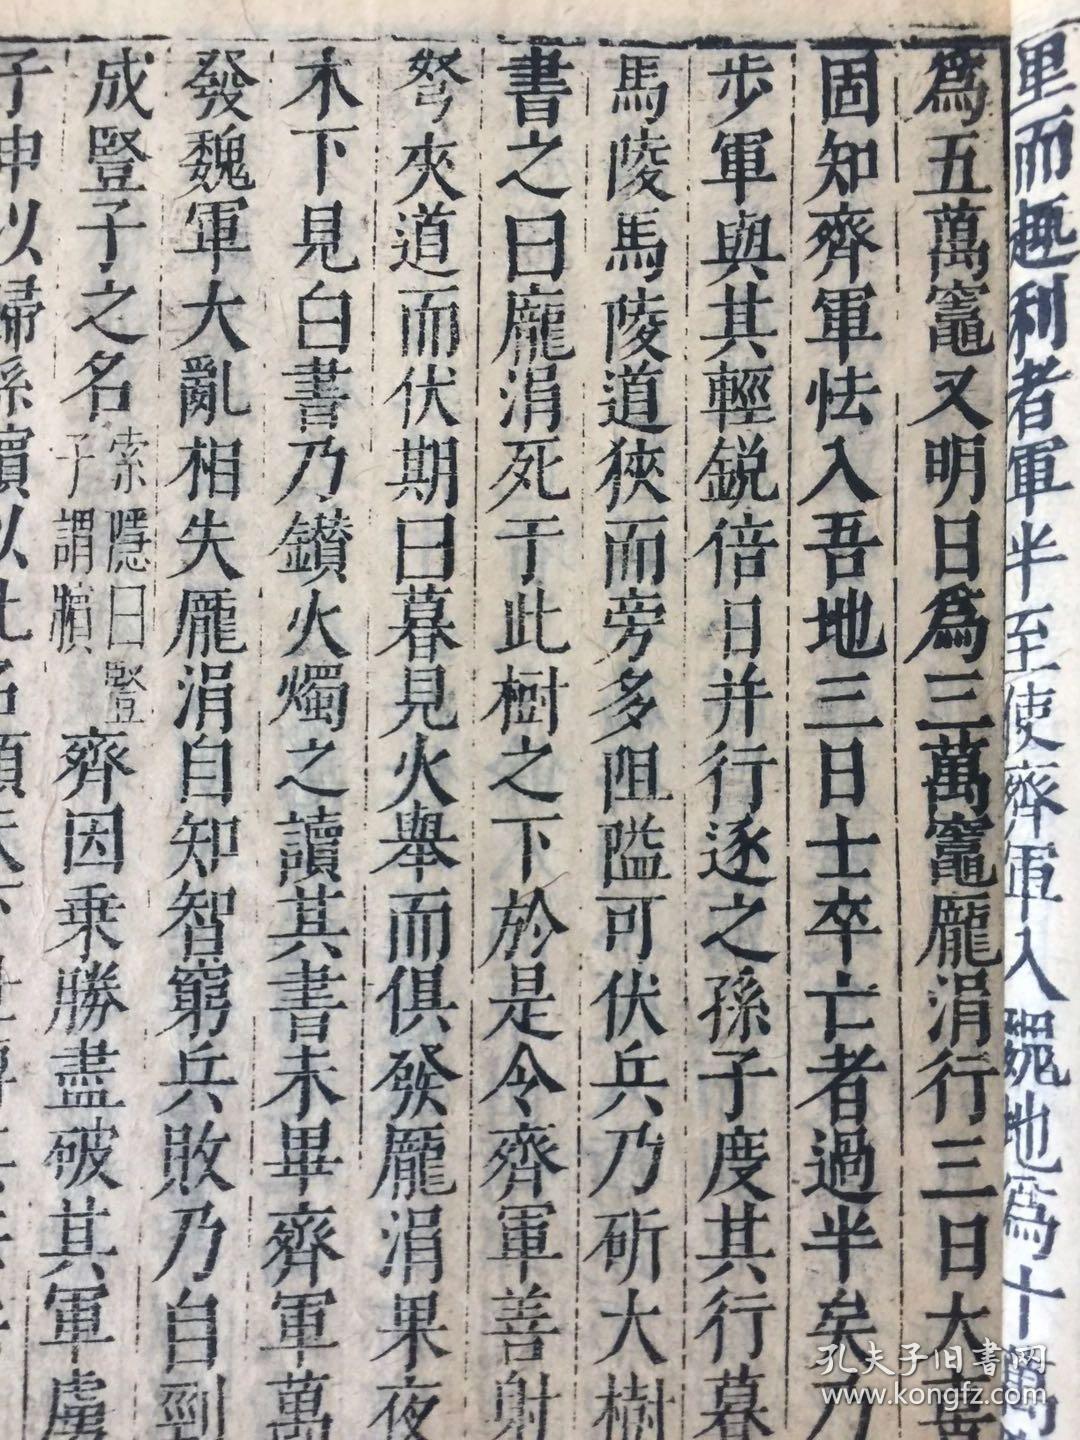 里而趣利者軍半至使齊軍入魏地爲十萬
爲五萬竈又明日爲三萬竈龐涓行三日大喜
固知齊軍怯入吾地三日士卒亡者過半矣乃
步軍與其輕銳倍日并行逐之孫子度其行暮
馬陵馬陵道狹而旁多阻隘可伏兵乃斫大樹
書之曰龐涓死于此樹之下於是令齊軍善射
弩夾道而伏期曰暮見火舉而俱發龐涓果夜
木下見白書乃鑽火燭之讀其書未畢齊軍萬
發魏軍大亂相失龐涓自知智窮兵敗乃自剄
成豎子之名索隱曰豎子謂臏齊因乗勝盡破其軍虜
子申以歸孫臏以此名顯天下世傳其兵
孔夫子旧书网
www.kongfz.com